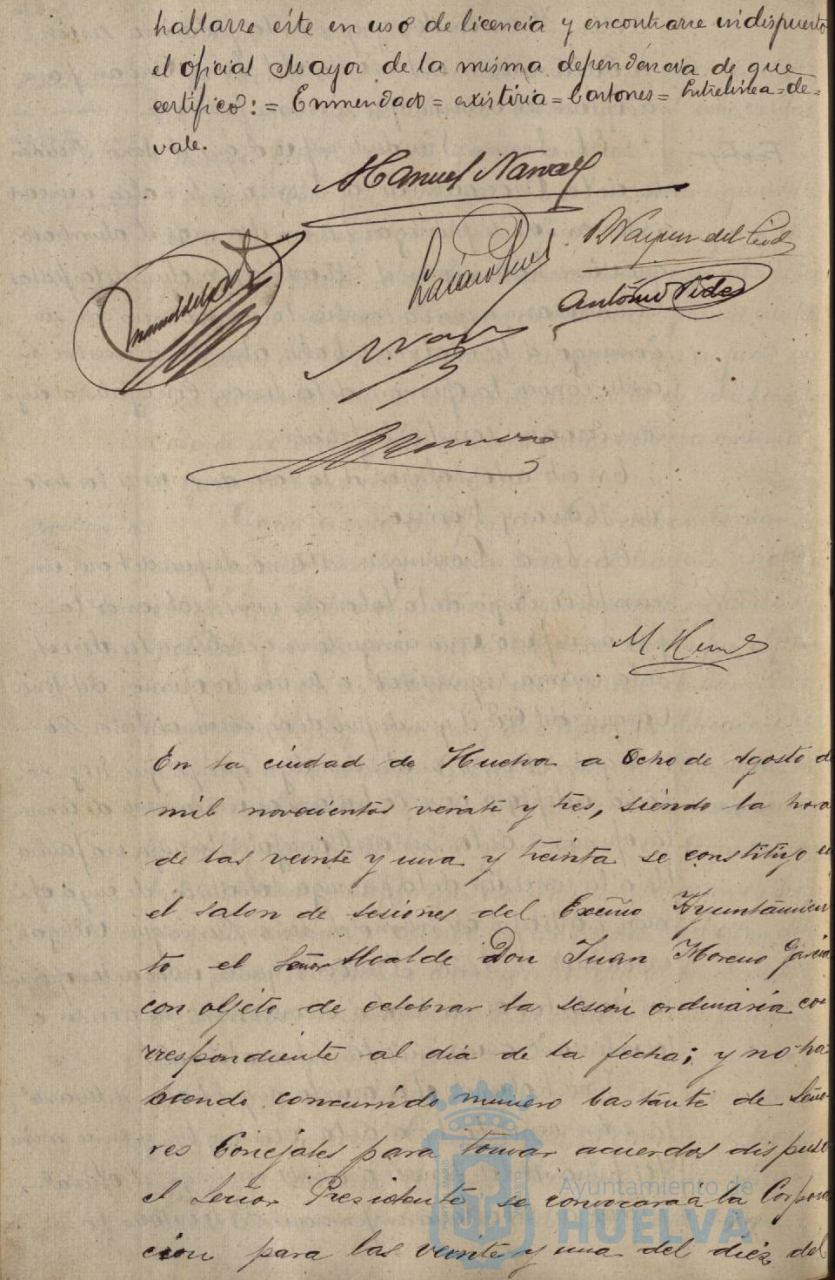 hallarse este en uso de licencia y encontrarse indispuesto
el oficial Mayor de la misma dependencia de que
certifico: = Enmendado = existiria = bastones = Entrelinea = de =
vale.
Manuel Narvaez
Lazaro Perez
B Vazquez del Cid
Antonio Vides
M. 
En la ciudad de Huelva a Ocho de Agosto d
mil novecientos veinte y tres, siendo la hora
de las veinte y una y treinta se constituyo en
el salon de sesiones del Excmo Ayuntamien
to el Señor Alcalde Don Juan Moreno Garcia
con objeto de celebrar la sesión ordinaria co
rrespondiente al dia de la fecha; y no ha
biendo concurrido numero bastante de Seño
res Concejales para tomar acuerdos dispuso
el Señor Presidente se convocará a la Corpora
ción para las veinte y una del diez del
Ayuntamiento de
HUELVA